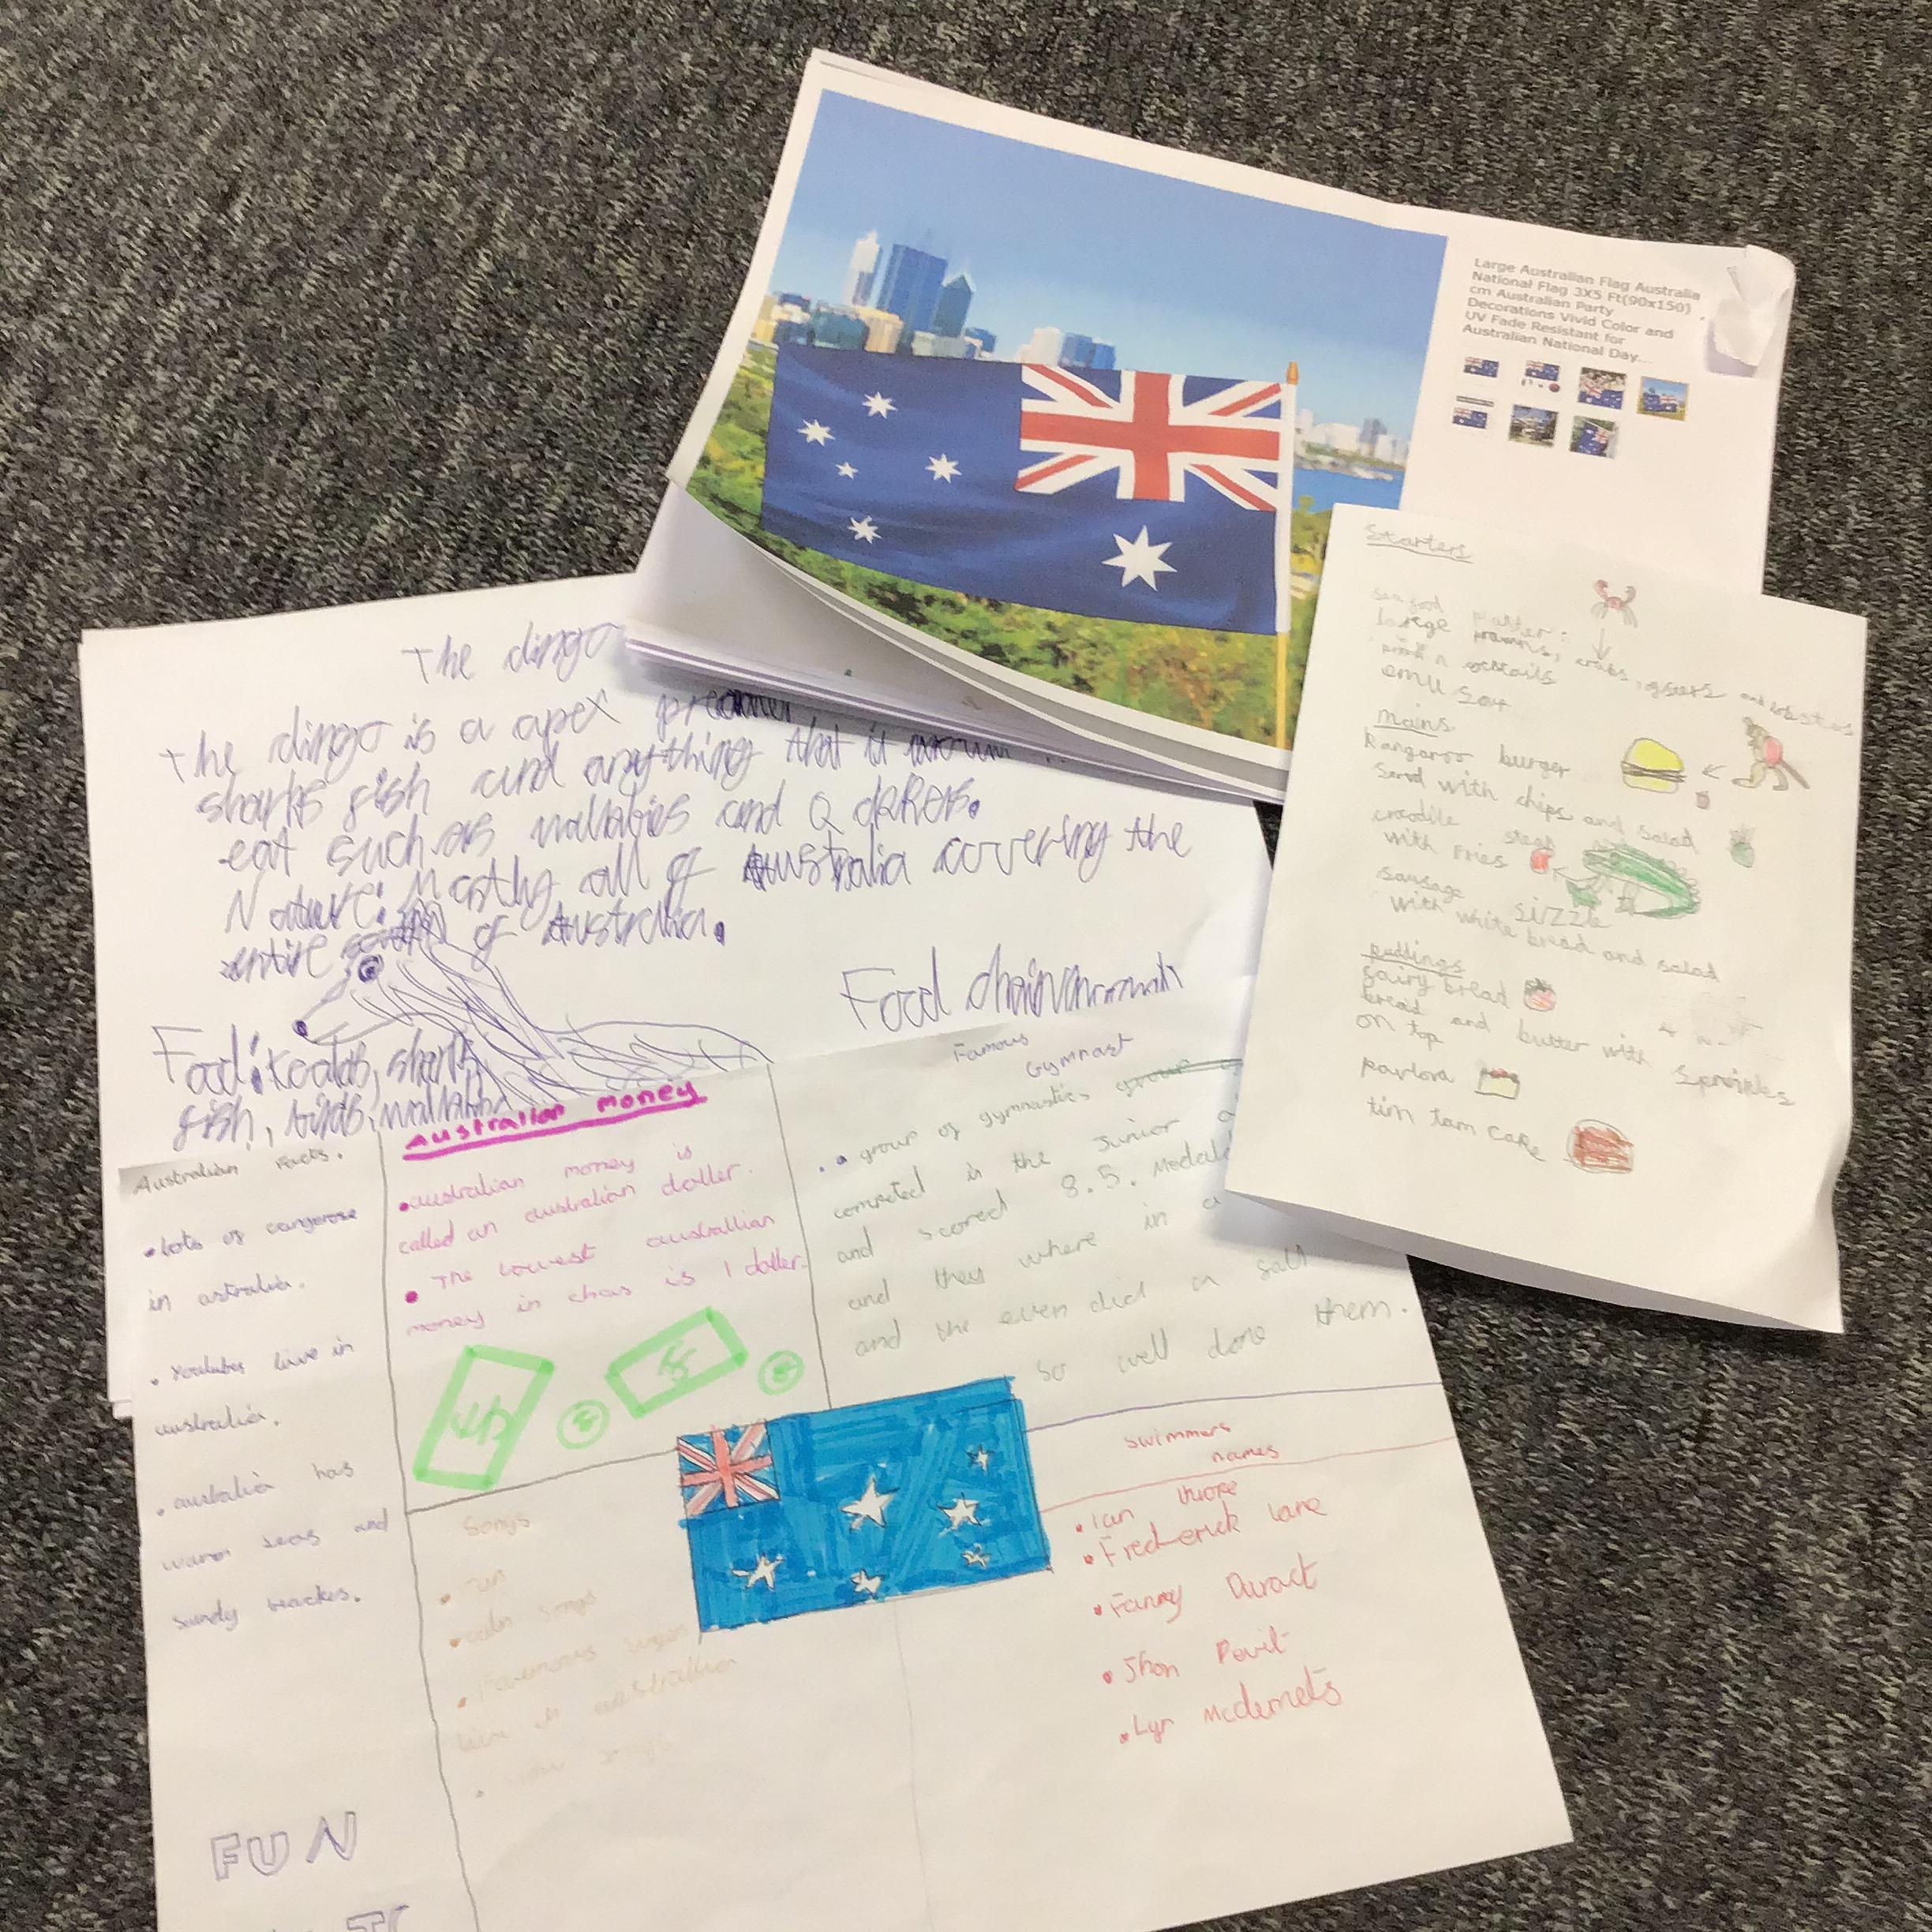 Large Australian Flag Australia
National Flag 3X5 Ft(90x150)
cm Australian Party
Decorations Vivid Color and
UV Fade Resistant for
Australian National Day...
Starters
sea food platter:
large prawns, crabs, oysters and lobsters
cocktails
emu
mains
kangaroo burger
with chips and salad
crocodile steak
with fries
sausage sizzle
with white bread and salad
puddings
fairy bread
bread and butter with sprinkles
on top
pavlova
tim tam cake
The dingo
The dingo is a apex
sharks fish and anything that it
eat such as wallabies and
Nature: all of Australia covering the
entire of Australia.
Food chain
Food: koalas, sharks,
fish, birds,
Australian facts.
• Lots of
in australia.
• live in
australia.
• australia has
warm seas and
sandy
FUN
Australian money
• australian money is
called an australian doller.
• The lowest australlian
money in chas is 1 doller.
Famous
Gymnast
• a group of gymnastics group
competed in the junior
and scored 8.5.
and they where in a
and the even did a
so well done them.
Songs
• Fun
songs
• Famous
live in australlian
swimmers
names
• Ian thorpe
• Frederick Lane
• Fanny Duract
• Jhon Devit
• Lyn Mcclemets